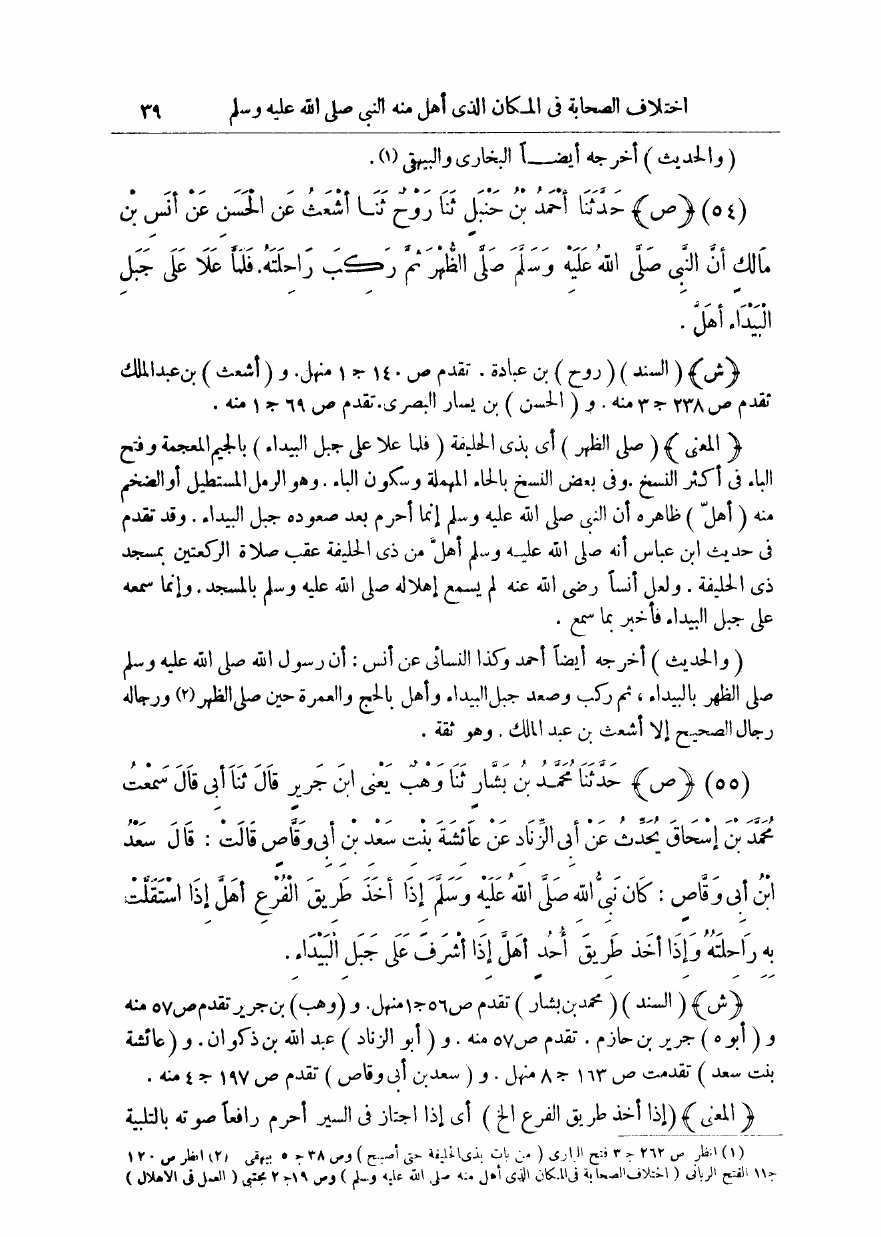 اختلاف الصحابة فى المكان الذى أهل منه النبي صلى الله عليه وسلم ٣٩
( والحديث ) أخرجه أيضـــاً البخارى والبيهقى (١) .
(٥٤) ﴿ص﴾ حَدَّثَنَا أَحْمَدُ بْنُ حَنْبَلٍ ثَنَا رَوْحٌ ثَنَـا أَشْعَثُ عَنِ الْحَسَنِ عَنْ أَنَسِ بْنِ
مَالِكٍ أَنَّ النَّبِى صَلَّى اللهُ عَلَيْهِ وَسَلَّمَ صَلَّى الظُّهْرَ ثُمَّ رَكِبَ رَاحِلَتَهُ. فَلَمَّا عَلَا عَلَى جَبَلِ
الْبَيْدَاءِ أَهَلَّ .
﴿ش﴾ ( السند ) ( روح ) بن عبادة . تقدم ص ١٤٠ ج ١ منهل. و ( أشعث ) بن عبد الملك
تقدم ص ٢٣٨ ج ٣ منه . و ( الحسن ) بن يسار البصرى. تقدم ص ٦٩ ج ١ منه .
﴿ المعنى ﴾ ( صلى الظهر ) أى بذى الحليفة ( فلما علا على جبل البيداء ) بالجيم المعجمة وفتح
الباء فى أكثر النسخ . وفى بعض النسخ بالحاء المهملة وسكون الباء . وهو الرمل المستطيل أو الضخم
منه ( أهلّ ) ظاهره أن النبى صلى الله عليه وسلم إنما أحرم بعد صعوده جبل البيداء . وقد تقدم
فى حديث ابن عباس أنه صلى الله عليـه وسلم أهلّ من ذى الحليفة عقب صلاة الركعتين بمسجد
ذى الحليفة . ولعل أنساً رضى الله عنه لم يسمع إهلاله صلى الله عليه وسلم بالمسجد . وإنما سمعه
على جبل البيداء فأخبر بما سمع .
( والحديث ) أخرجه أيضاً أحمد وكذا النسائى عن أنس : أن رسول الله صلى الله عليه وسلم
صلى الظهر بالبيداء ، ثم ركب وصعد جبل البيداء وأهل بالحج والعمرة حين صلى الظهر (٢) ورجاله
رجال الصحيح إلا أشعث بن عبد الملك . وهو ثقة .
(٥٥) ﴿ص﴾ حَدَّثَنَا مُحَمَّـدُ بْنُ بَشَّارٍ ثَنَا وَهْبٌ يَعْنِى ابْنَ جَرِيرٍ قَالَ ثَنَا أَبِى قَالَ سَمِعْتُ
مُحَمَّدَ بْنَ إِسْحَاقَ يُحَدِّثُ عَنْ أَبِى الزِّنَادِ عَنْ عَائِشَةَ بِنْتِ سَعْدِ بْنِ أَبِى وَقَّاصٍ قَالَتْ : قَالَ سَعْدُ
ابْنُ أَبِى وَقَّاصٍ : كَانَ نَبِىُّ اللهِ صَلَّى اللهُ عَلَيْهِ وَسَلَّمَ إِذَا أَخَذَ طَرِيقَ الْفُرْعِ أَهَلَّ إِذَا اسْتَقَلَّتْ
بِهِ رَاحِلَتُهُ وَإِذَا أَخَذَ طَرِيقَ أُحُدٍ أَهَلَّ إِذَا أَشْرَفَ عَلَى جَبَلِ الْبَيْدَاءِ .
﴿ش﴾ ( السند ) ( محمد بن بشار ) تقدم ص ٥٦ ج ١ منهل. و (وهب) بن جرير تقدم ص ٥٧ منه
و ( أبوه ) جرير بن حازم . تقدم ص ٥٧ منه . و ( أبو الزناد ) عبد الله بن ذكوان . و ( عائشة
بنت سعد ) تقدمت ص ١٦٣ ج ٨ منهل . و ( سعد بن أبى وقاص ) تقدم ص ١٩٧ ج ٤ منه .
﴿ المعنى ﴾ (إذا أخذ طريق الفرع الخ ) أى إذا اجتاز فى السير أحرم رافعاً صوته بالتلبية
(١) انظر ص ٢٦٢ ج ٣ فتح البارى ( من بات بذى الحليفة حتى أصبح ) وص ٣٨ ج ٥ بيهقى (٢) انظر ص ١٢٠
ج ١١ الفتح الربانى ( اختلاف الصحابة فى المكان الذى أهل منه صلى الله عليه وسلم ) وص ١٩ ج ٢ مجتبى ( العمل فى الاهلال )